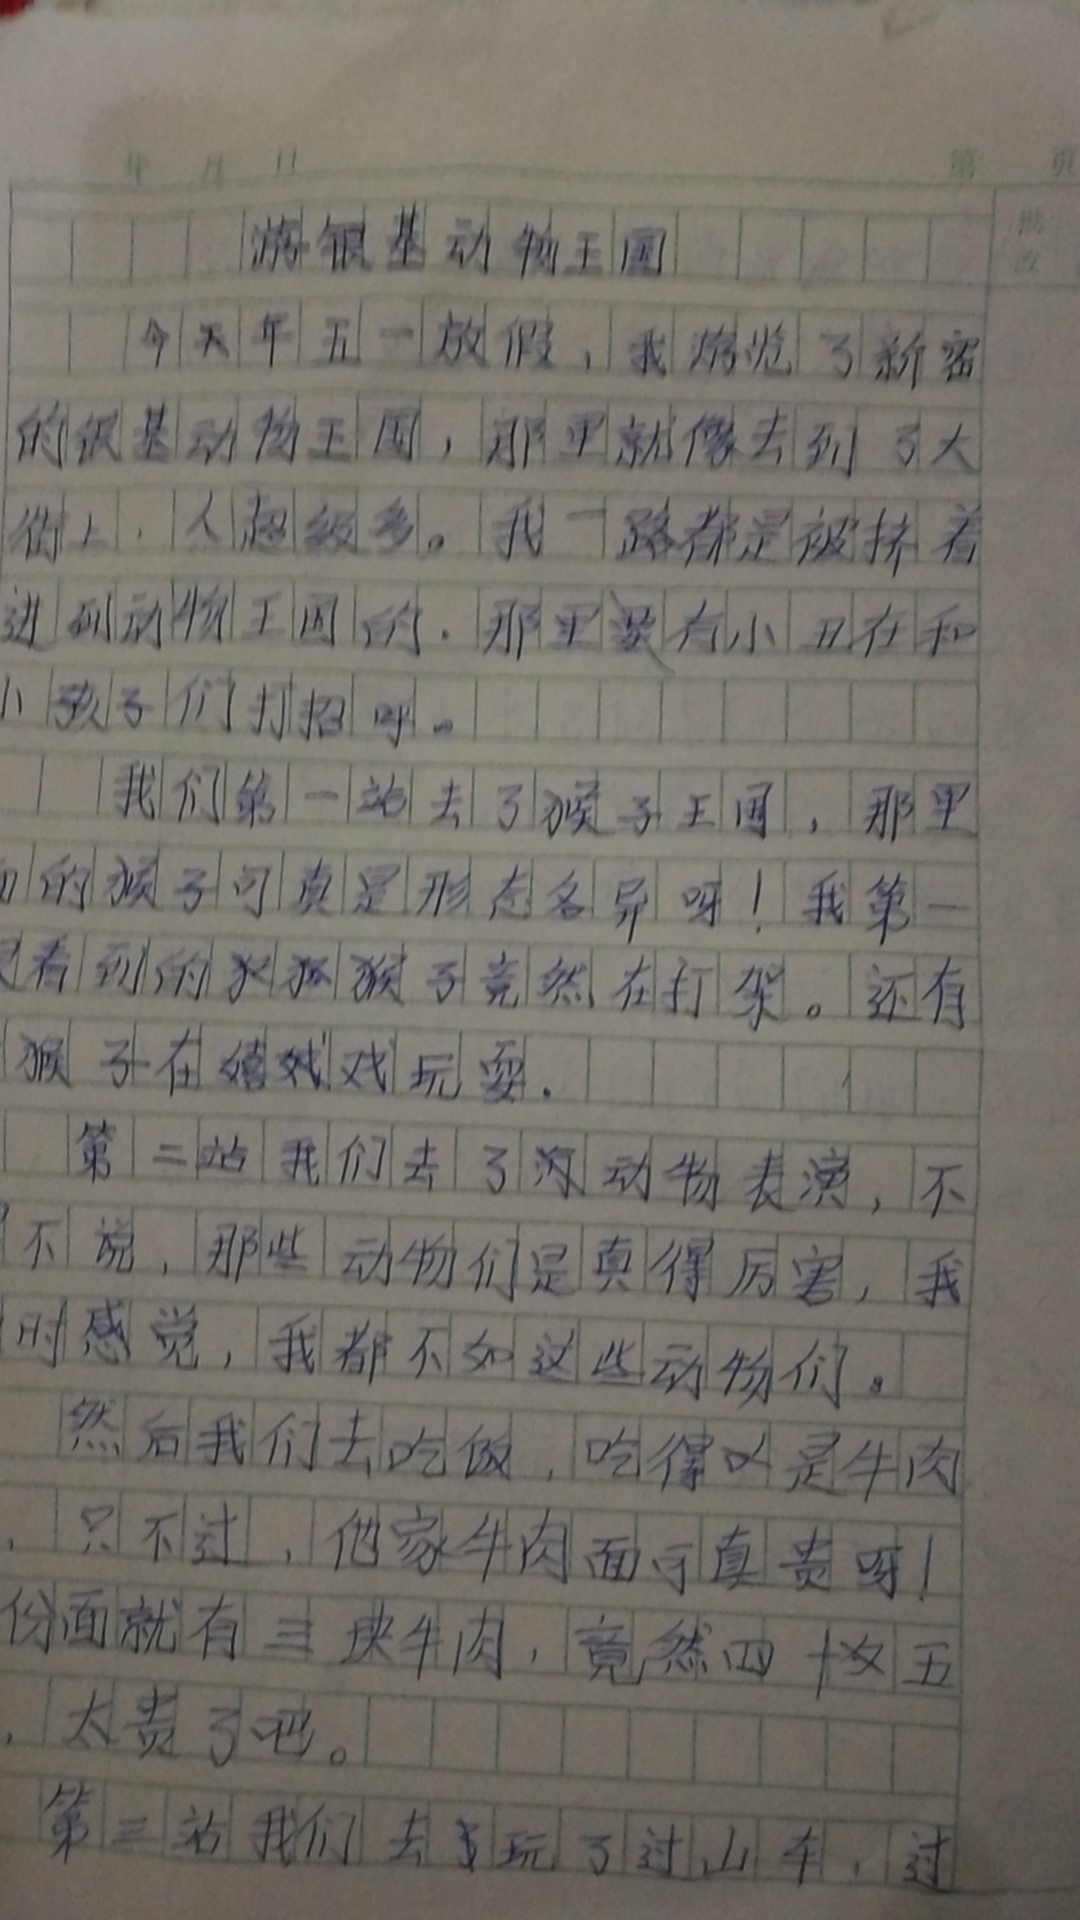 年 月 日 第 页
批改
游银基动物王国
今天年五一放假，我游览了新密
的银基动物王国，那里就像去到了大
街上，人超级多。我一路都是被挤着
进到动物王国的．那里有小丑在和
小孩子们打招呼。
我们第一站去了猴子王国，那里
面的猴子可真是形态各异呀！我第一
看到的猴子竟然在打架。还有
猴子在嬉戏玩耍．
第二站我们去了海动物表演，不
不说，那些动物们是真得厉害，我
时感觉，我都不如这些动物们。
然后我们去吃饭，吃得是牛肉
，只不过，他家牛肉面可真贵呀！
份面就有三块牛肉，竟然四十五
，太贵了吧。
第三站我们去玩了过山车，过